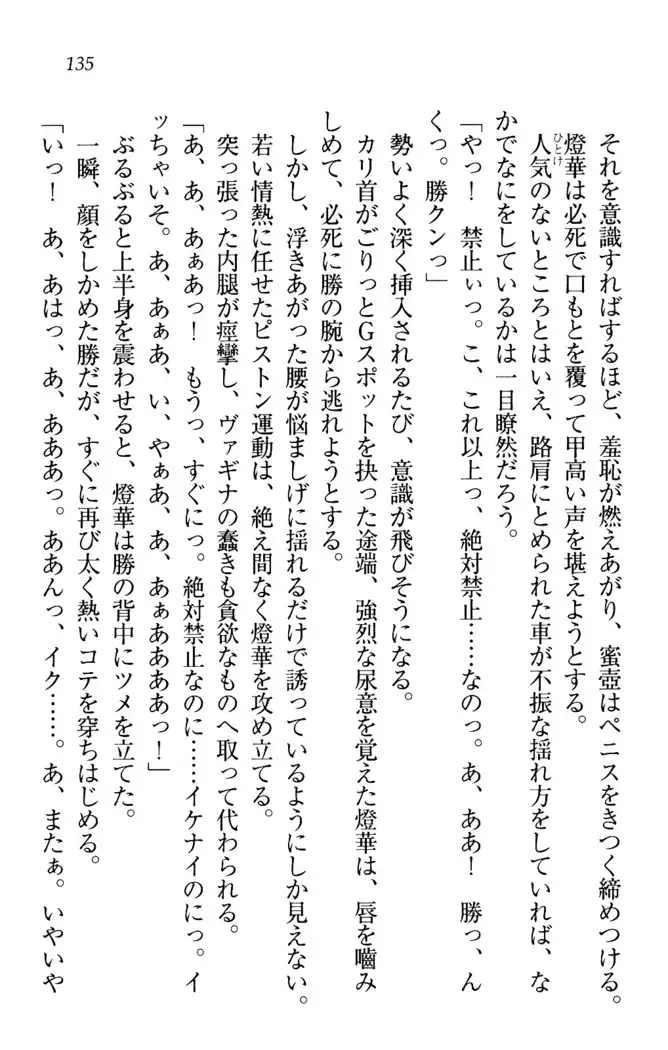 135
それを意識すればするほど、羞恥が燃えあがり、蜜壺はペニスをきつく締めつける。
燈華は必死で口もとを覆って甲高い声を堪えようとする。
人気のないところとはいえ、路肩にとめられた車が不振な揺れ方をしていれば、な
ひとけ
かでなにをしているかは一目瞭然だろう。
「やっ！　禁止ぃっ。こ、これ以上っ、絶対禁止……なのっ。あ、ああ！　勝っ、ん
くっ。勝クンっ」
勢いよく深く挿入されるたび、意識が飛びそうになる。
カリ首がごりっとGスポットを抉った途端、強烈な尿意を覚えた燈華は、唇を嚙み
しめて、必死に勝の腕から逃れようとする。
しかし、浮きあがった腰が悩ましげに揺れるだけで誘っているようにしか見えない。
若い情熱に任せたピストン運動は、絶え間なく燈華を攻め立てる。
突っ張った内腿が痙攣し、ヴァギナの蠢きも貪欲なものへ取って代わられる。
「あ、あ、あぁあっ！　もうっ、すぐにっ。絶対禁止なのに……イケナイのにっ。イ
ッちゃいそ。あ、あぁあ、い、やぁあ、あ、あぁああああっ！」
ぶるぶると上半身を震わせると、燈華は勝の背中にツメを立てた。
一瞬、顔をしかめた勝だが、すぐに再び太く熱いコテを穿ちはじめる。
「いっ！　あ、あはっ、あ、あああっ。ああんっ、イク……。あ、またぁ。いやいや